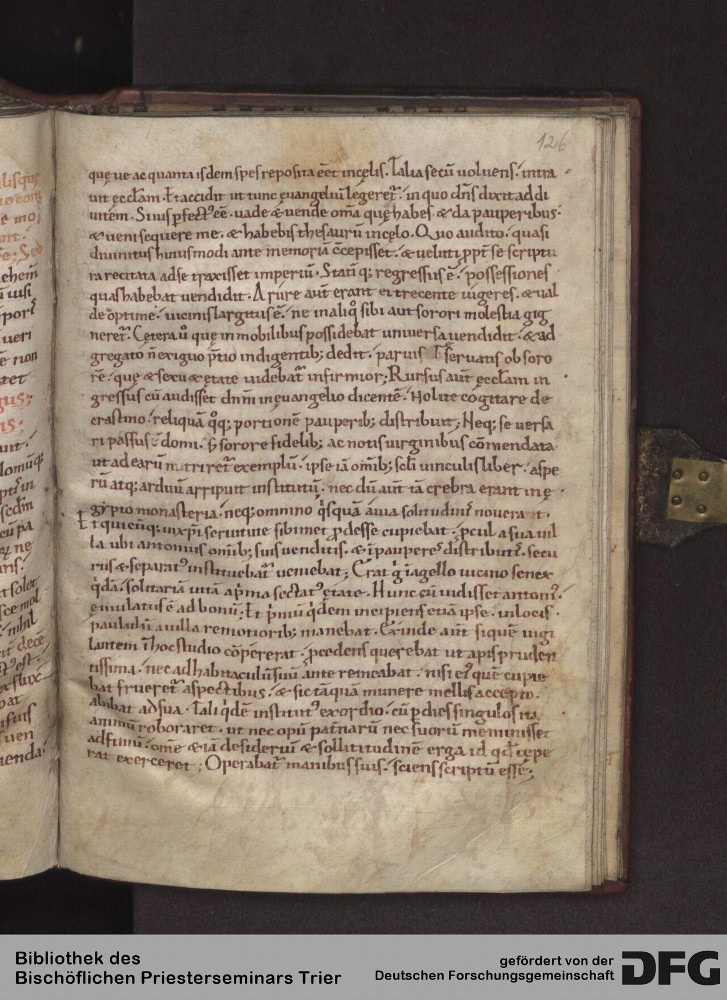 126
quę ve ac quanta isdem spes reposita eēt in cęlis. Talia secū voluens. intra
uit ęcclam. Et accidit ut tunc euangeliū legeret. in quo dns dixit ad di
uitem. Si uis pfect' eē. uade & vende oma quę habes. & da pauperibus.
& veni sequere me. & habebis thesaurū in cęlo. Quo audito. quasi
diuinitus huiusmodi ante memoriā cōcepisset. & veluti ppt se scriptu
ra recitata ad se traxisset imperiū. Statī q; regressus ē. possessiones
quas habebat uendidit. Arure aut erant ei trecente iugeres. & ual
de optime. uicinis largitus ē. ne in aliq̊ sibi aut sorori molestia gig
neret. Cetera ů que in mobilibus possidebat uniuersa uendidit. & ad
gregato ñ exiguo ptio indigentib; dedit. paruis reseruatis ob soro
rē. quę & sexu & ętate uidebat infirmior; Rursus aut ęcclam in
gressus cū audisset dnm in euangelio dicentē. Nolite cogitare de
crastino. reliquā q̊q; portionē pauperib; distribuit; Neq; se uersa
ri passus ē domi. s; sorore fidelib; ac notis uirginibus cōmendata
ut ad earū nutriret exemplū. ipse iā omib; scli uinculis liber. aspe
rū atq; arduū arripuit institutū. nec dū aut tā crebra erant in ę
gypto monasteria. neq; omnino q̊squā auia solitudinē nouerat.
Et quicūq; in xpi seruitute sibimet pdesse cupiebat. pcul a sua uil
la ubi antonius omib; suis uenditis. & ī pauperes distributis. secu
rus & separat' instituebat ueniebat; Erat g̊ ī agello uicino senex
q̊dā. solitariā uitā a pma sectat' ętate. Hunc cū uidisset antoni'.
emulatus ē ad bonū; Et pmū q̊dem incipiens etiā ipse. in locis
paululū a uilla remotiorib; manebat. Exinde aut si quē uigi
lantem ī hoc studio cōpererat. pcedens querebat ut apis pruden
tissima. nec ad habitaculū suū ante remeabat. nisi ei' quē cupie
bat frueret aspectibus. & sic tāquā munere mellis accepto.
abibat ad sua. Tali q̊dē institut' exordio. cū p dies singulos ita
animū roboraret. ut nec opū patnarū nec suorū meminisset
adfiniū. omē & iā desideriū & sollitudinē erga id qd ceperat
rat exerceret; Operabat manibus suis. sciens scriptū esse;
Bibliothek des
Bischöflichen Priesterseminars Trier
gefördert von der
Deutschen Forschungsgemeinschaft
DFG